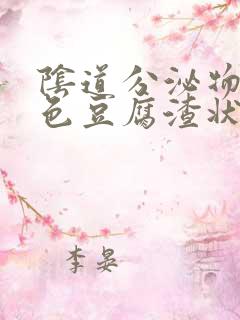 陰道分泌物
色豆腐渣状
李晏